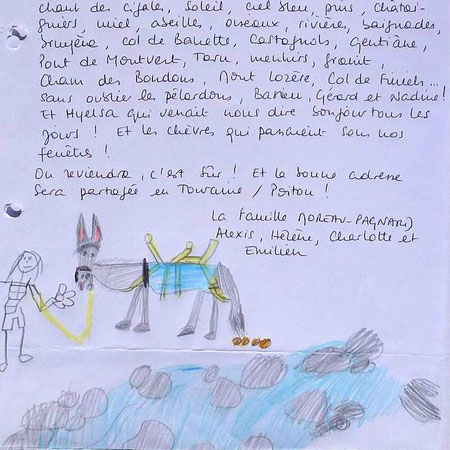 chant des cigales, soleil, ciel bleu, pins, chatai-
gniers, miel, abeilles, oiseaux, rivière, baignades,
bruyère, col de Banette, Castagnols, Gentiane,
Pont de Montvert, Tarn, menhirs, granit,
Cham des Bondons, Mont Lozère, Col de Finiels...
sans oublier les pélardons, Gérard et Nadine!
Et qui venait nous dire bonjour tous les
jours ! Et les chèvres qui passaient sous nos
fenêtres !
On reviendra, c'est sûr ! Et la bonne adresse
sera partagée en Touraine / Poitou !
La famille MOREAU-PAGNARD
Alexis, Hélène, Charlotte et
Emilien